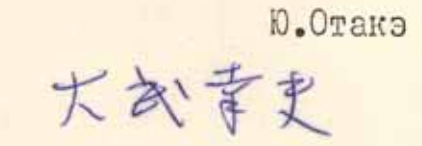 Ю.Отакэ
大武幸夫